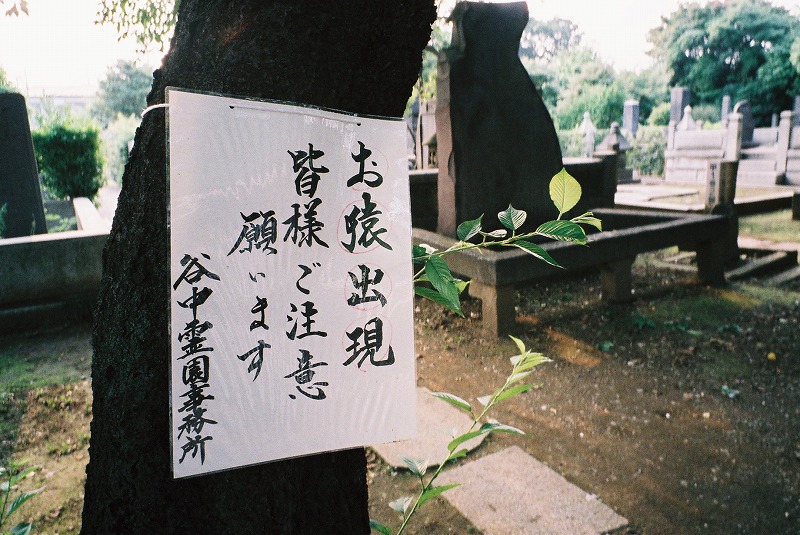 お猿出現
皆様ご注意
願います
谷中霊園事務所